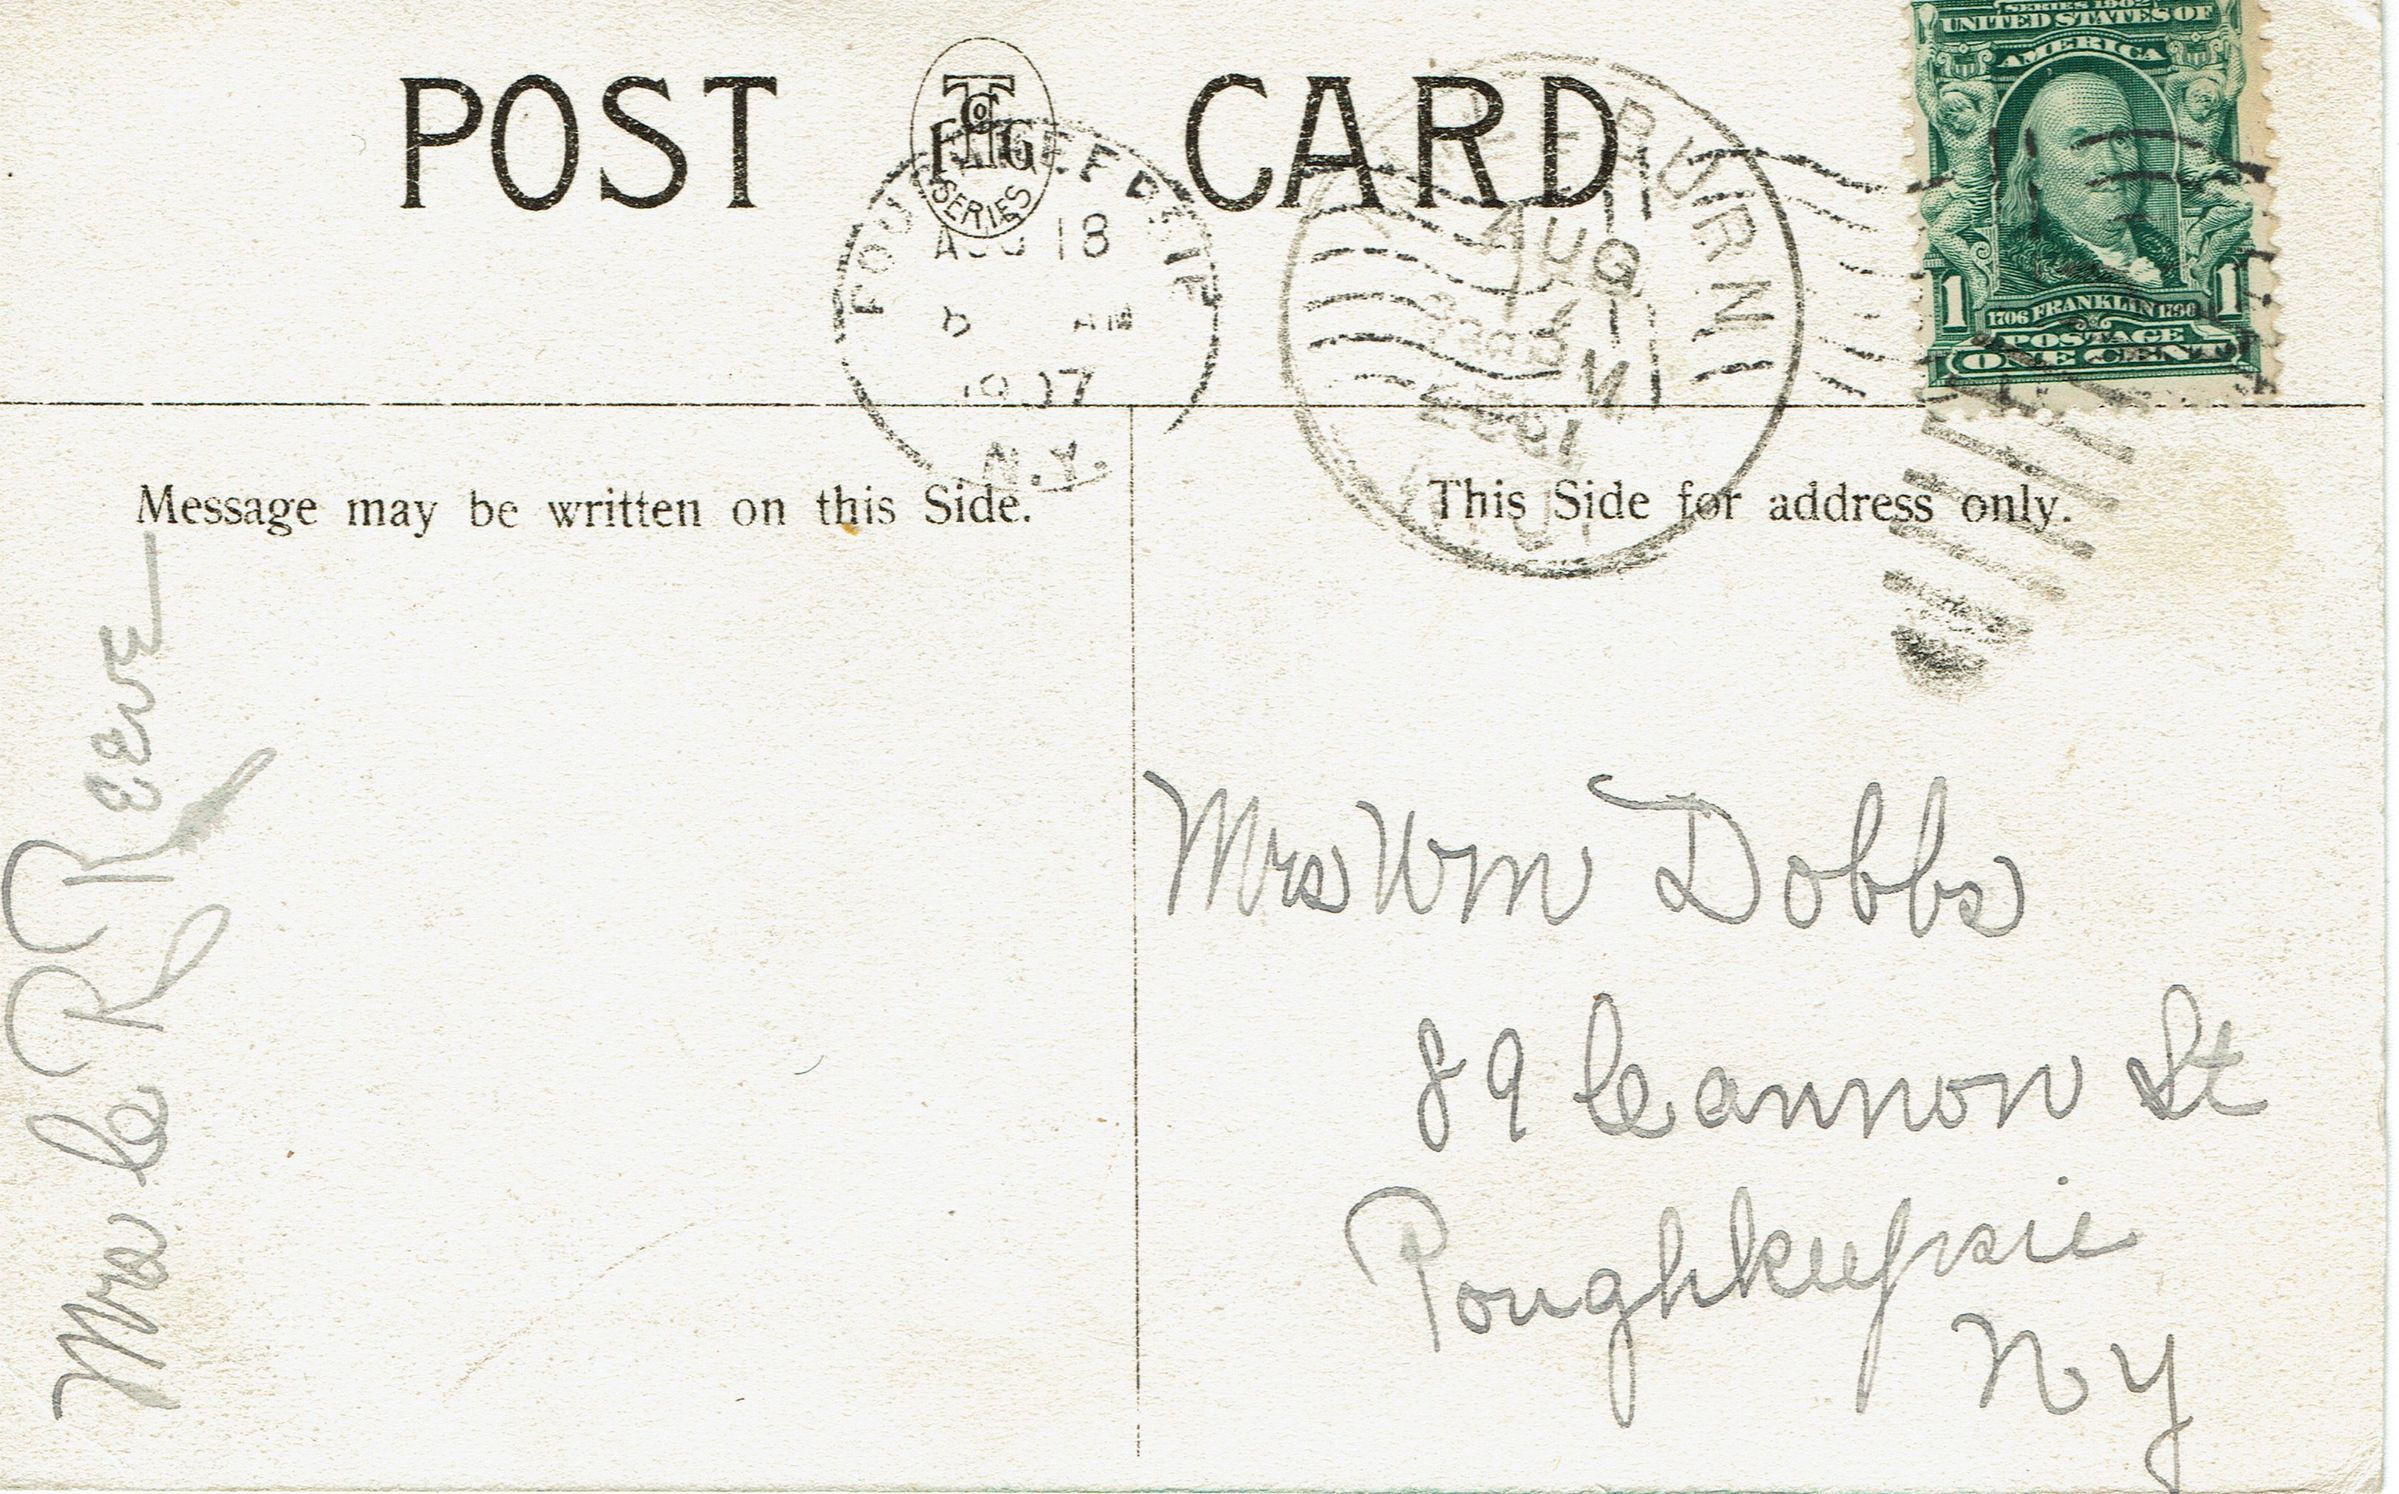 POST CARD
T Co
H G
SERIES
AUG 18
AM
1907
N.Y.
AUG
SERIES 1902
UNITED STATES OF
AMERICA
1 1706 FRANKLIN 1790 1
POSTAGE
ONE CENT
Message may be written on this Side.
This Side for address only.
Mrs C R Reeve
Mrs Wm Dobbs
89 Cannon St
Poughkeepsie
N Y